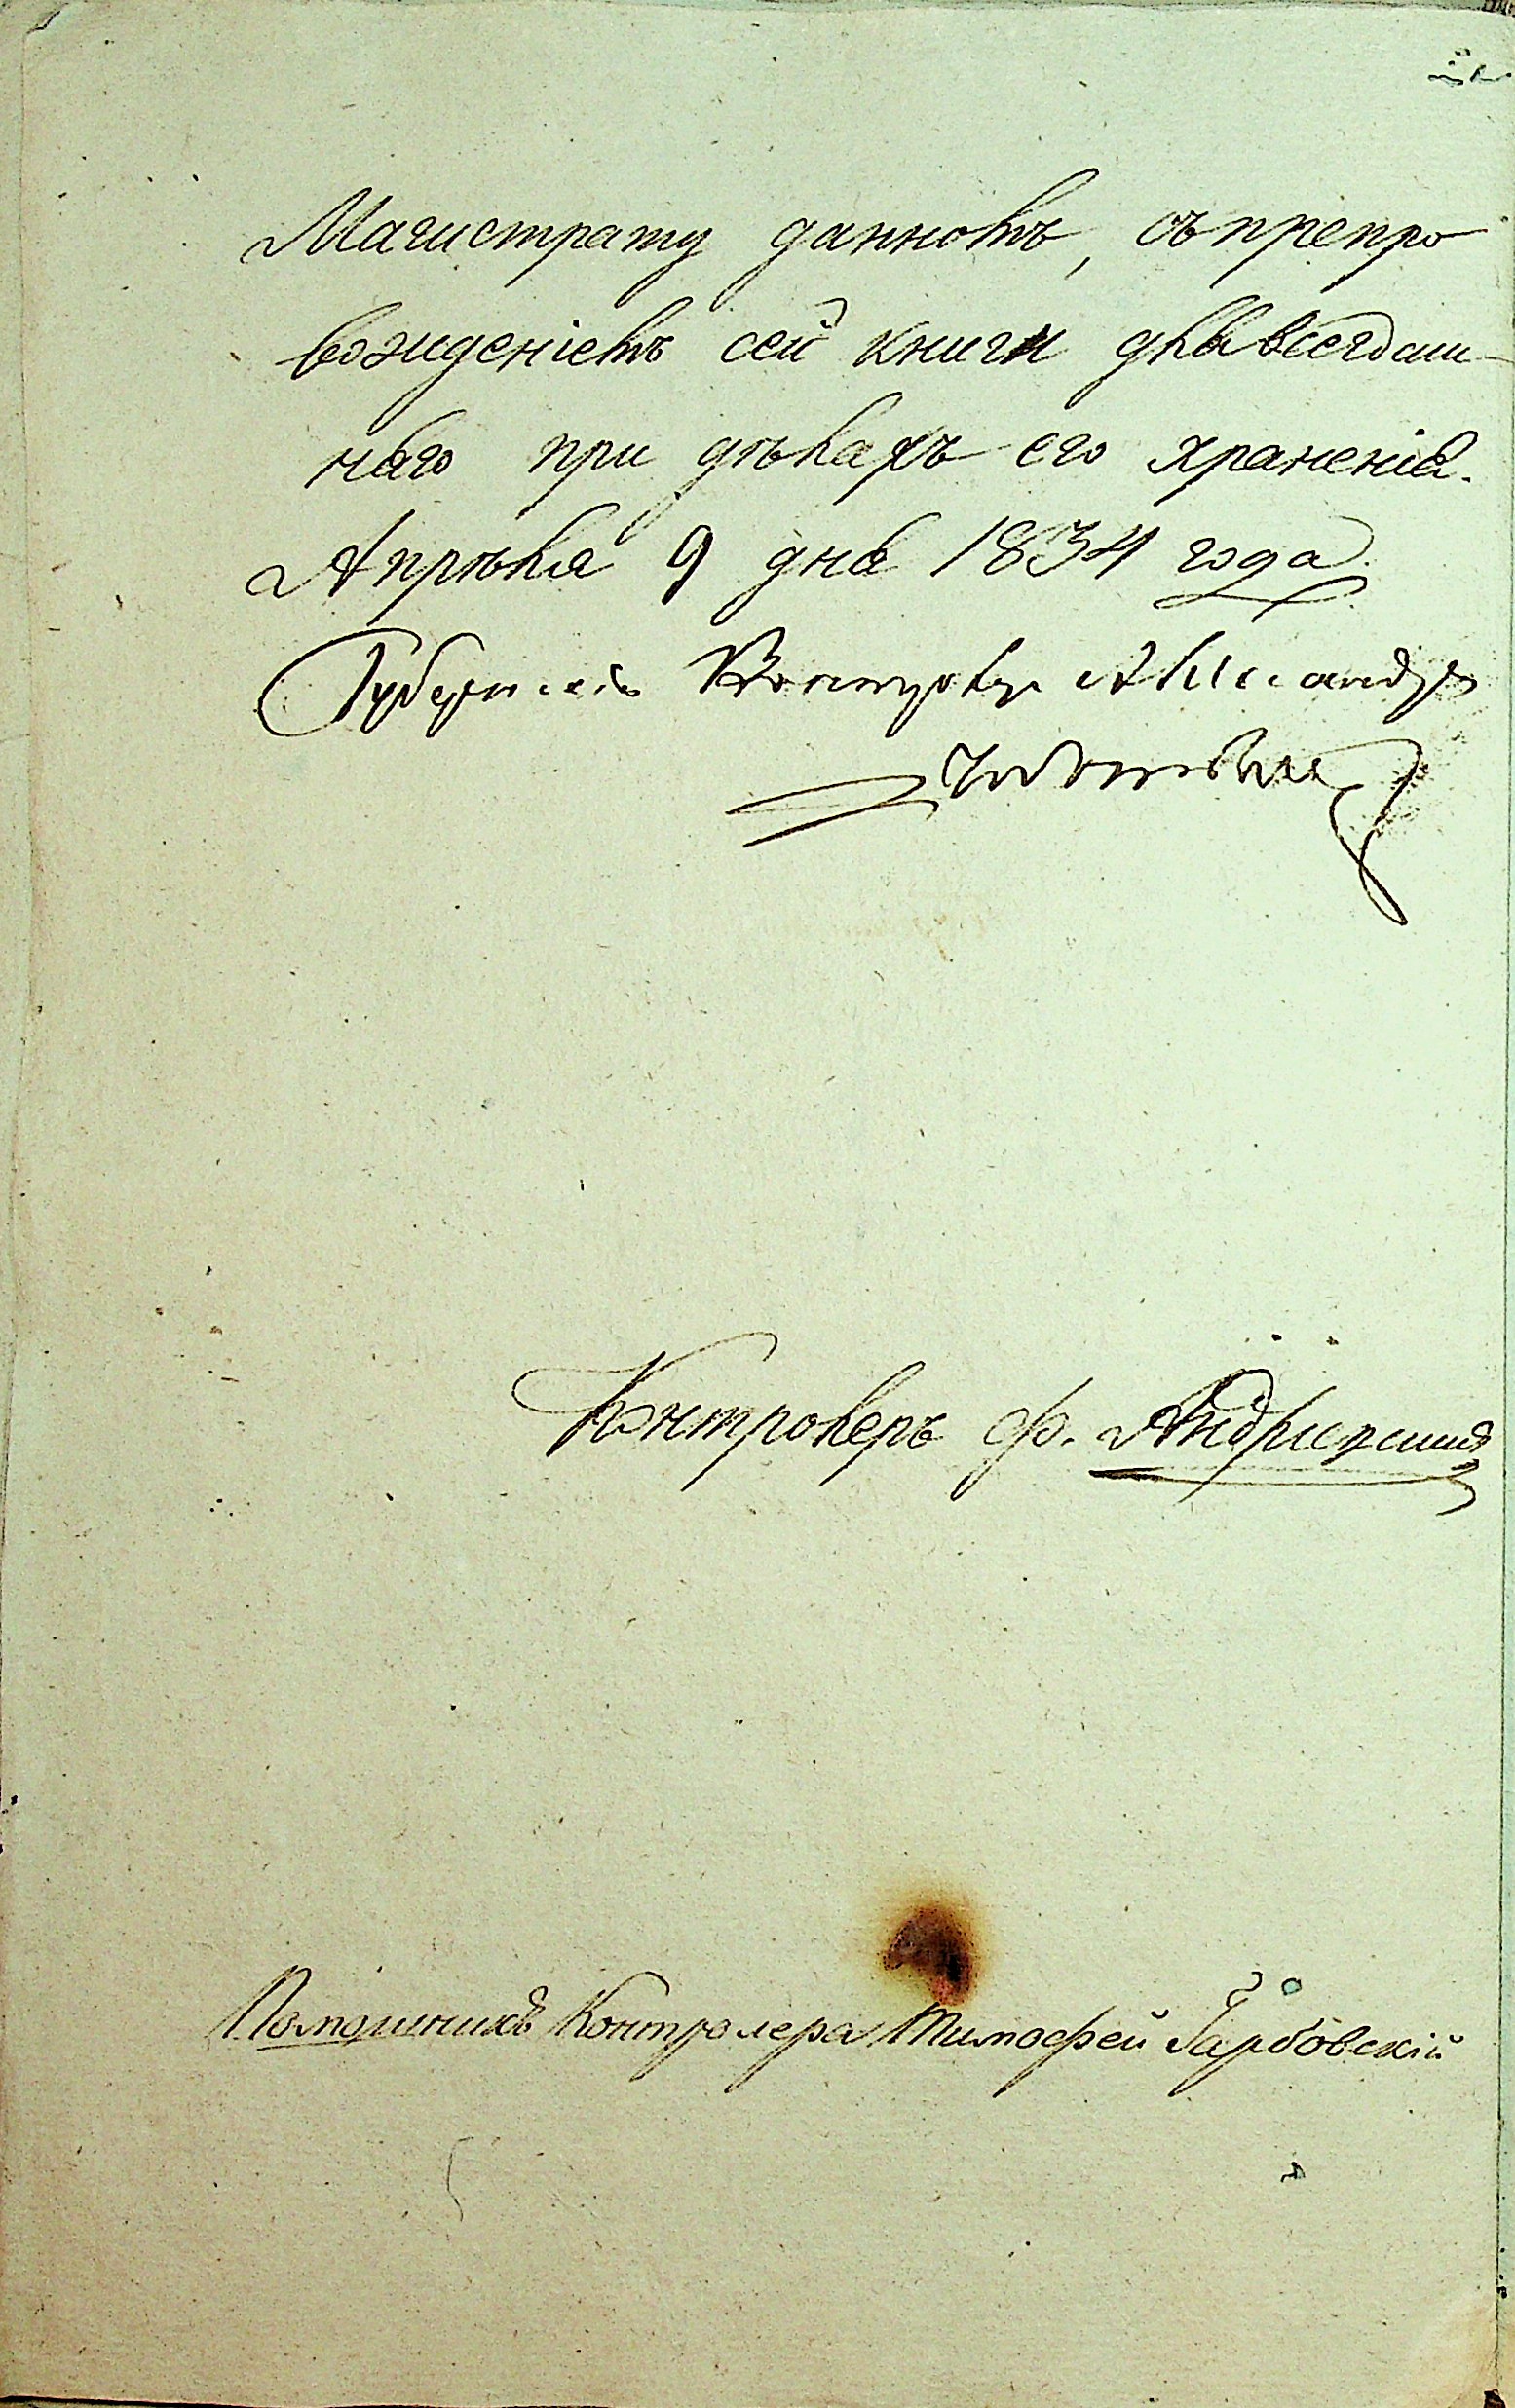 Магистрату данномъ, съ препро
вожденіемъ сей книги для всегдаш-
наго при дѣлахъ его храненія.
Апрѣля 9 дня 1834 года.
Губернскій Контролеръ Александръ
Контролеръ ф. Андріяшевъ
Помощникъ Контролера Тимофей Гарбовскій